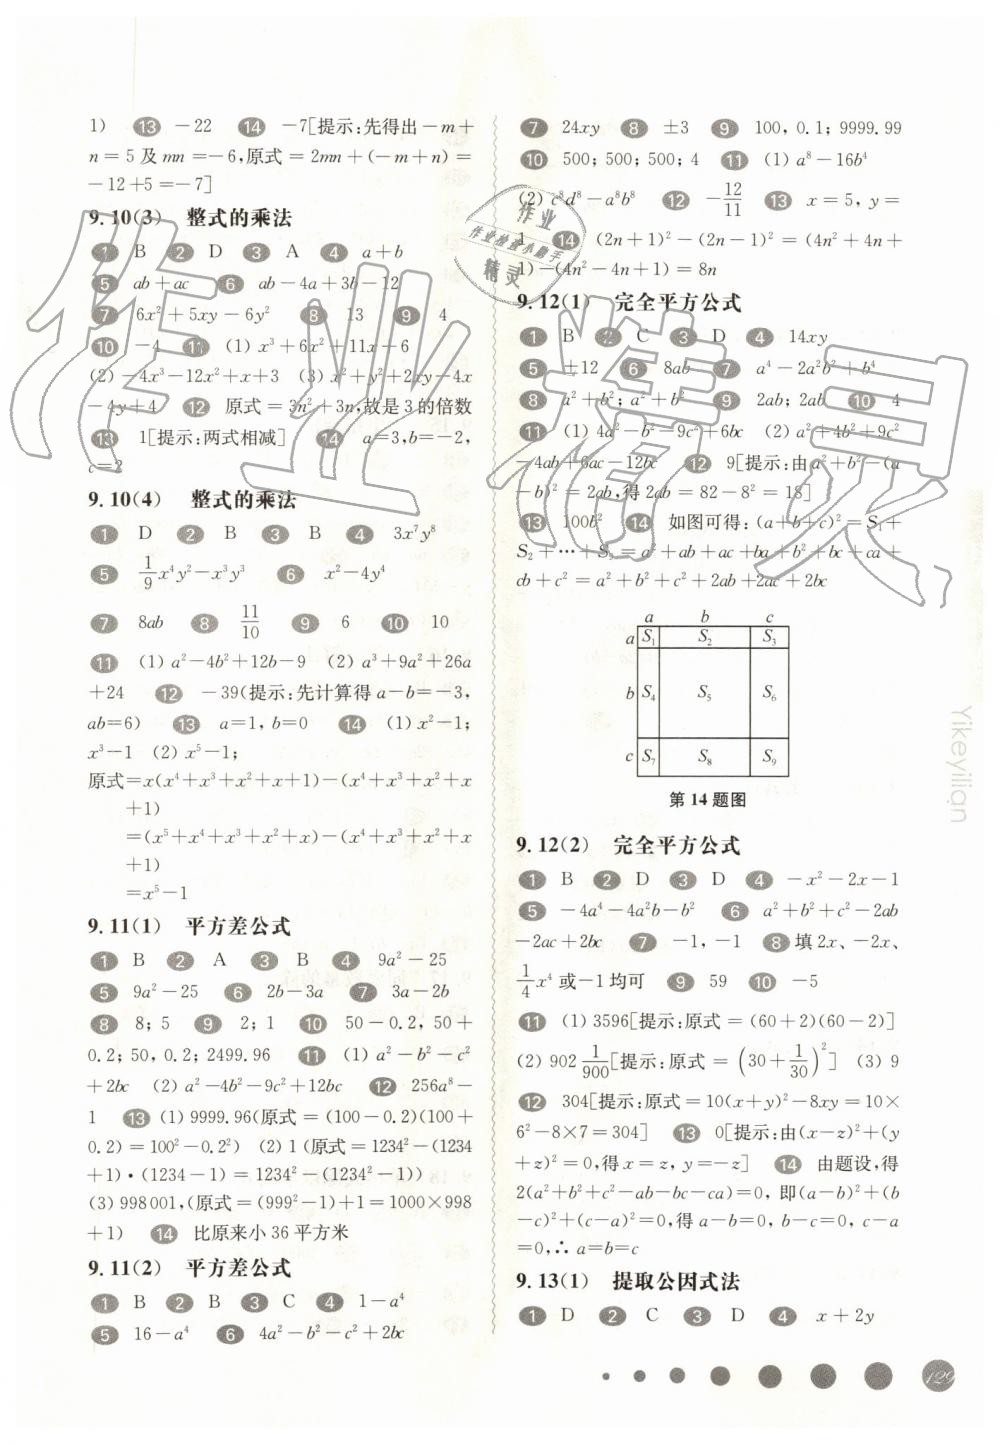 1) 13 -22 14 -7[提示:先得出-m+
n=5及mn=-6,原式=2mn+(-m+n)=
-12+5=-7]
9.10(3) 整式的乘法
1 B 2 D 3 A 4 a+b
5 ab+ac 6 ab-4a+3b-12
7 6x²+5xy-6y² 8 13 9 4
10 -4 11 (1) x³+6x²+11x-6
(2) -4x³-12x²+x+3 (3) x²+y²+2xy-4x
-4y+4 12 原式=3n²+3n,故是3的倍数
13 1[提示:两式相减] 14 a=3,b=-2,
c=2
9.10(4) 整式的乘法
1 D 2 B 3 B 4 3x⁷y⁸
5 1/9x⁴y²-x³y³ 6 x²-4y⁴
7 8ab 8 11/10 9 6 10 10
11 (1) a²-4b²+12b-9 (2) a³+9a²+26a
+24 12 -39(提示:先计算得a-b=-3,
ab=6) 13 a=1,b=0 14 (1) x²-1;
x³-1 (2) x⁵-1;
原式=x(x⁴+x³+x²+x+1)-(x⁴+x³+x²+x
+1)
=(x⁵+x⁴+x³+x²+x)-(x⁴+x³+x²+x
+1)
=x⁵-1
9.11(1) 平方差公式
1 B 2 A 3 B 4 9a²-25
5 9a²-25 6 2b-3a 7 3a-2b
8 8;5 9 2;1 10 50-0.2,50+
0.2;50,0.2;2499.96 11 (1) a²-b²-c²
+2bc (2) a²-4b²-9c²+12bc 12 256a⁸-
1 13 (1) 9999.96(原式=(100-0.2)(100+
0.2)=100²-0.2²) (2) 1(原式=1234²-(1234
+1)·(1234-1)=1234²-(1234²-1))
(3) 998001,(原式=(999²-1)+1=1000×998
+1) 14 比原来小36平方米
9.11(2) 平方差公式
1 B 2 B 3 C 4 1-a⁴
5 16-a⁴ 6 4a²-b²-c²+2bc
7 24xy 8 ±3 9 100,0.1;9999.99
10 500;500;500;4 11 (1) a⁸-16b⁴
(2) c⁸d⁸-a⁸b⁸ 12 -12/11 13 x=5,y=
1 14 (2n+1)²-(2n-1)²=(4n²+4n+
1)-(4n²-4n+1)=8n
9.12(1) 完全平方公式
1 B 2 C 3 D 4 14xy
5 ±12 6 8ab 7 a⁴-2a²b²+b⁴
8 a²+b²;a²+b² 9 2ab;2ab 10 4
11 (1) 4a²-b²-9c²+6bc (2) a²+4b²+9c²
-4ab+6ac-12bc 12 9[提示:由a²+b²-(a
-b)²=2ab,得2ab=82-8²=18]
13 100b² 14 如图可得:(a+b+c)²=S₁+
S₂+…+S₉=a²+ab+ac+ba+b²+bc+ca+
cb+c²=a²+b²+c²+2ab+2ac+2bc
a b c
a S₁ S₂ S₃
b S₄ S₅ S₆
c S₇ S₈ S₉
第14题图
9.12(2) 完全平方公式
1 B 2 D 3 D 4 -x²-2x-1
5 -4a⁴-4a²b-b² 6 a²+b²+c²-2ab
-2ac+2bc 7 -1,-1 8 填2x、-2x、
1/4x⁴或-1均可 9 59 10 -5
11 (1) 3596[提示:原式=(60+2)(60-2)]
(2) 902 1/900[提示:原式=(30+1/30)²] (3) 9
12 304[提示:原式=10(x+y)²-8xy=10×
6²-8×7=304] 13 0[提示:由(x-z)²+(y
+z)²=0,得x=z,y=-z] 14 由题设,得
2(a²+b²+c²-ab-bc-ca)=0,即(a-b)²+(b
-c)²+(c-a)²=0,得a-b=0,b-c=0,c-a
=0,∴a=b=c
9.13(1) 提取公因式法
1 D 2 C 3 D 4 x+2y
Yikeyilian
129
作业
作业检查小助手
精灵
作业精灵